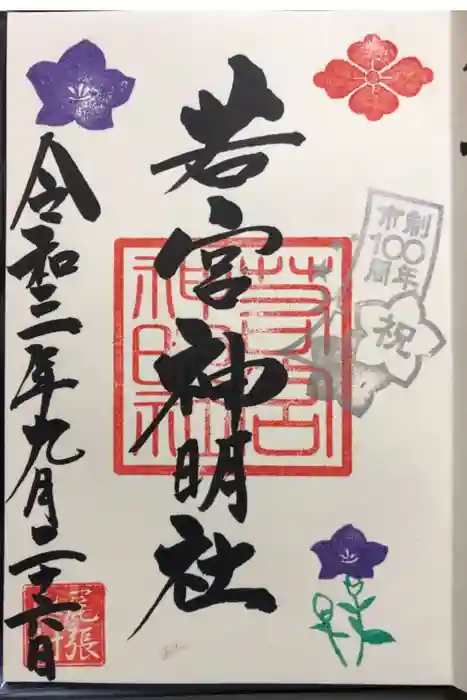 若宮神明社
令和三年九月二十六日
市制
100
周年
祝
若宮
神明社
尾張